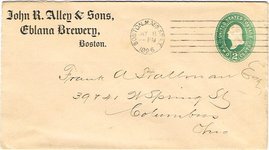 John R. Alley & Sons,
Eblana Brewery,
Boston.
BOSTON, MASS.
1896
UNITED STATES
2
Frank A Stallman Esq
W Spring St
Columbus
Ohio